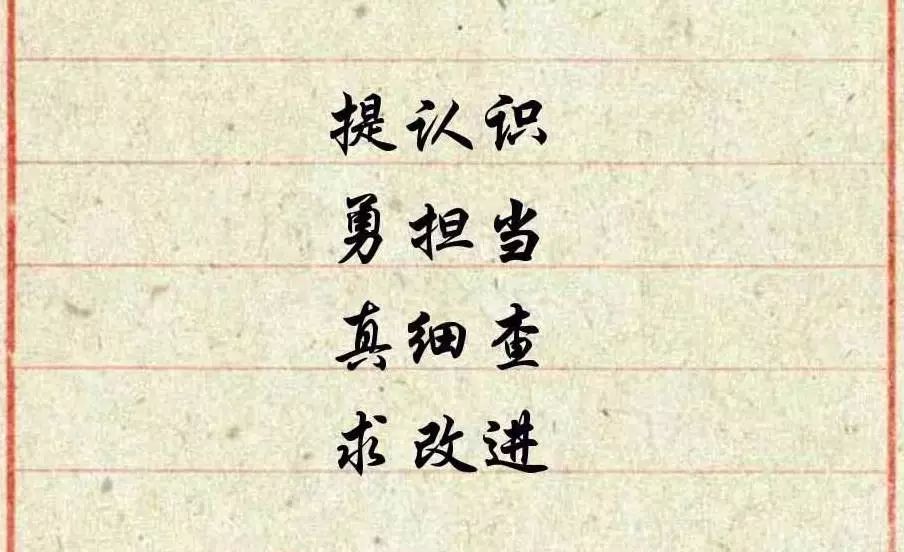 提认识
勇担当
真细查
求改进